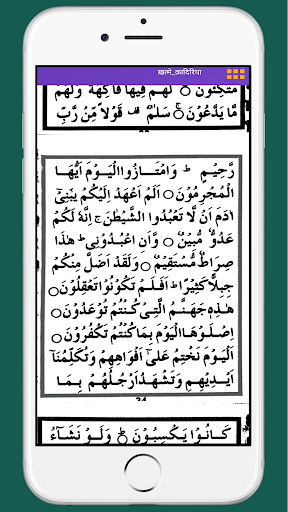 ख़त्मे_क़ादिरिया
مُتَّكِئُوْنَ ۝ لَهُمْ فِيْهَا فَاكِهَةٌ وَّلَهُمْ
مَّا يَدَّعُوْنَ ۝ سَلٰمٌ ۣ قَوْلًا مِّنْ رَّبٍّ
رَّحِيْمٍ ۝ وَامْتَازُوا الْيَوْمَ اَيُّهَا
الْمُجْرِمُوْنَ ۝ اَلَمْ اَعْهَدْ اِلَيْكُمْ يٰبَنِيْٓ
اٰدَمَ اَنْ لَّا تَعْبُدُوا الشَّيْطٰنَ ۚ اِنَّهٗ لَكُمْ
عَدُوٌّ مُّبِيْنٌ ۝ وَّاَنِ اعْبُدُوْنِيْ ؕ هٰذَا
صِرَاطٌ مُّسْتَقِيْمٌ ۝ وَلَقَدْ اَضَلَّ مِنْكُمْ
جِبِلًّا كَثِيْرًا ؕ اَفَلَمْ تَكُوْنُوْا تَعْقِلُوْنَ ۝
هٰذِهٖ جَهَنَّمُ الَّتِيْ كُنْتُمْ تُوْعَدُوْنَ ۝
اِصْلَوْهَا الْيَوْمَ بِمَا كُنْتُمْ تَكْفُرُوْنَ ۝
اَلْيَوْمَ نَخْتِمُ عَلٰٓى اَفْوَاهِهِمْ وَتُكَلِّمُنَآ
اَيْدِيْهِمْ وَتَشْهَدُ اَرْجُلُهُمْ بِمَا
كَانُوْا يَكْسِبُوْنَ ۝ وَلَوْ نَشَآءُ